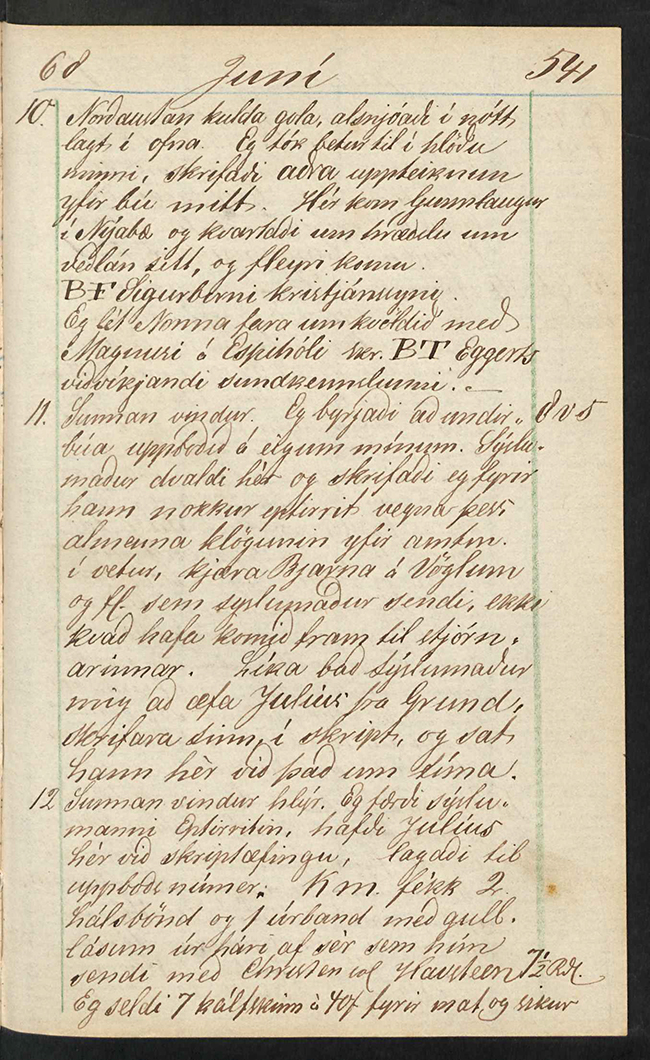 68 Juní 541
10. Norðaustan kulda gola, alsnjóaði í nótt
lagt í ofna. Eg tók betur til í hlöðu
minni, skrifaði aðra uppteiknun
yfir bú mitt. Hér kom Gunnlaugur
í Nýabæ og kvartaði um hræðslu um
veðlán sitt, og fleyri komu.
BF Sigurbirni Kristjánssyni.
Eg lét Nonna fara um kvöldið með
Magnusi á Espihóli skr. BT Eggerts
viðvíkjandi sundkennslunni. –
11. Sunnan vindur. Eg byrjaði að undir„ 8 v 5
búa uppboðið á eigum mínum. Sýslu„
maður dvaldi hér og skrifaði eg fyrir
hann nokkur eptirrit vegna þess
almenna klögunin yfir amtm.
í vetur, kjæra Bjarna á Vöglum
og fl. sem syslumaður sendi, ekki
kvað hafa komið fram til stjórn„
arinnar. Líka bað sýslumaður
mig að æfa Julíus frá Grund,
skrifara sinn, í skript, og sat
hann hèr við það um tíma.
12 Sunnan vindur hlýr. Eg færði sýslu„
manni Eptirritin, hafði Julíus
hér við skriptæfingu, lagaði til
uppboðs númer. Km. fékk 2
hálsbönd og 1 úrband með gull„
lásum úr hári af sèr sem hún
sendi með Christen Havsteen 7½ Rdl.
Eg seldi 7 kálfskinn á 40f fyrir mat og sikur